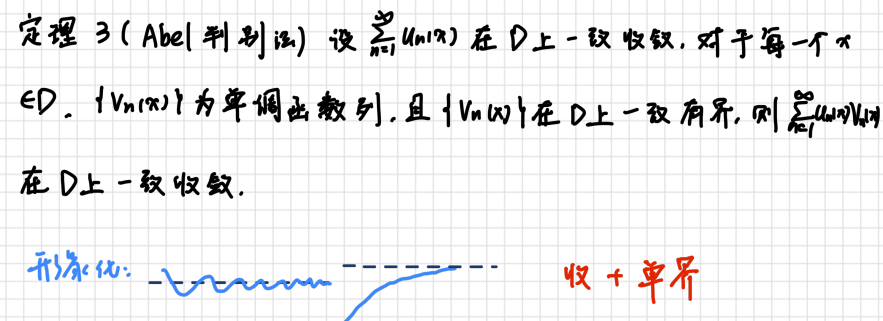 定理 3 (Abel 判别法) 设 $\sum_{n=1}^{\infty} u_n(x)$ 在 D 上一致收敛. 对于每一个 x
∈D. {Vn(x)} 为单调函数列. 且 {Vn(x)} 在 D上一致有界. 则 $\sum_{n=1}^{\infty} u_n(x)V_n(x)$
在 D上一致收敛.
形象化: 收 + 单界